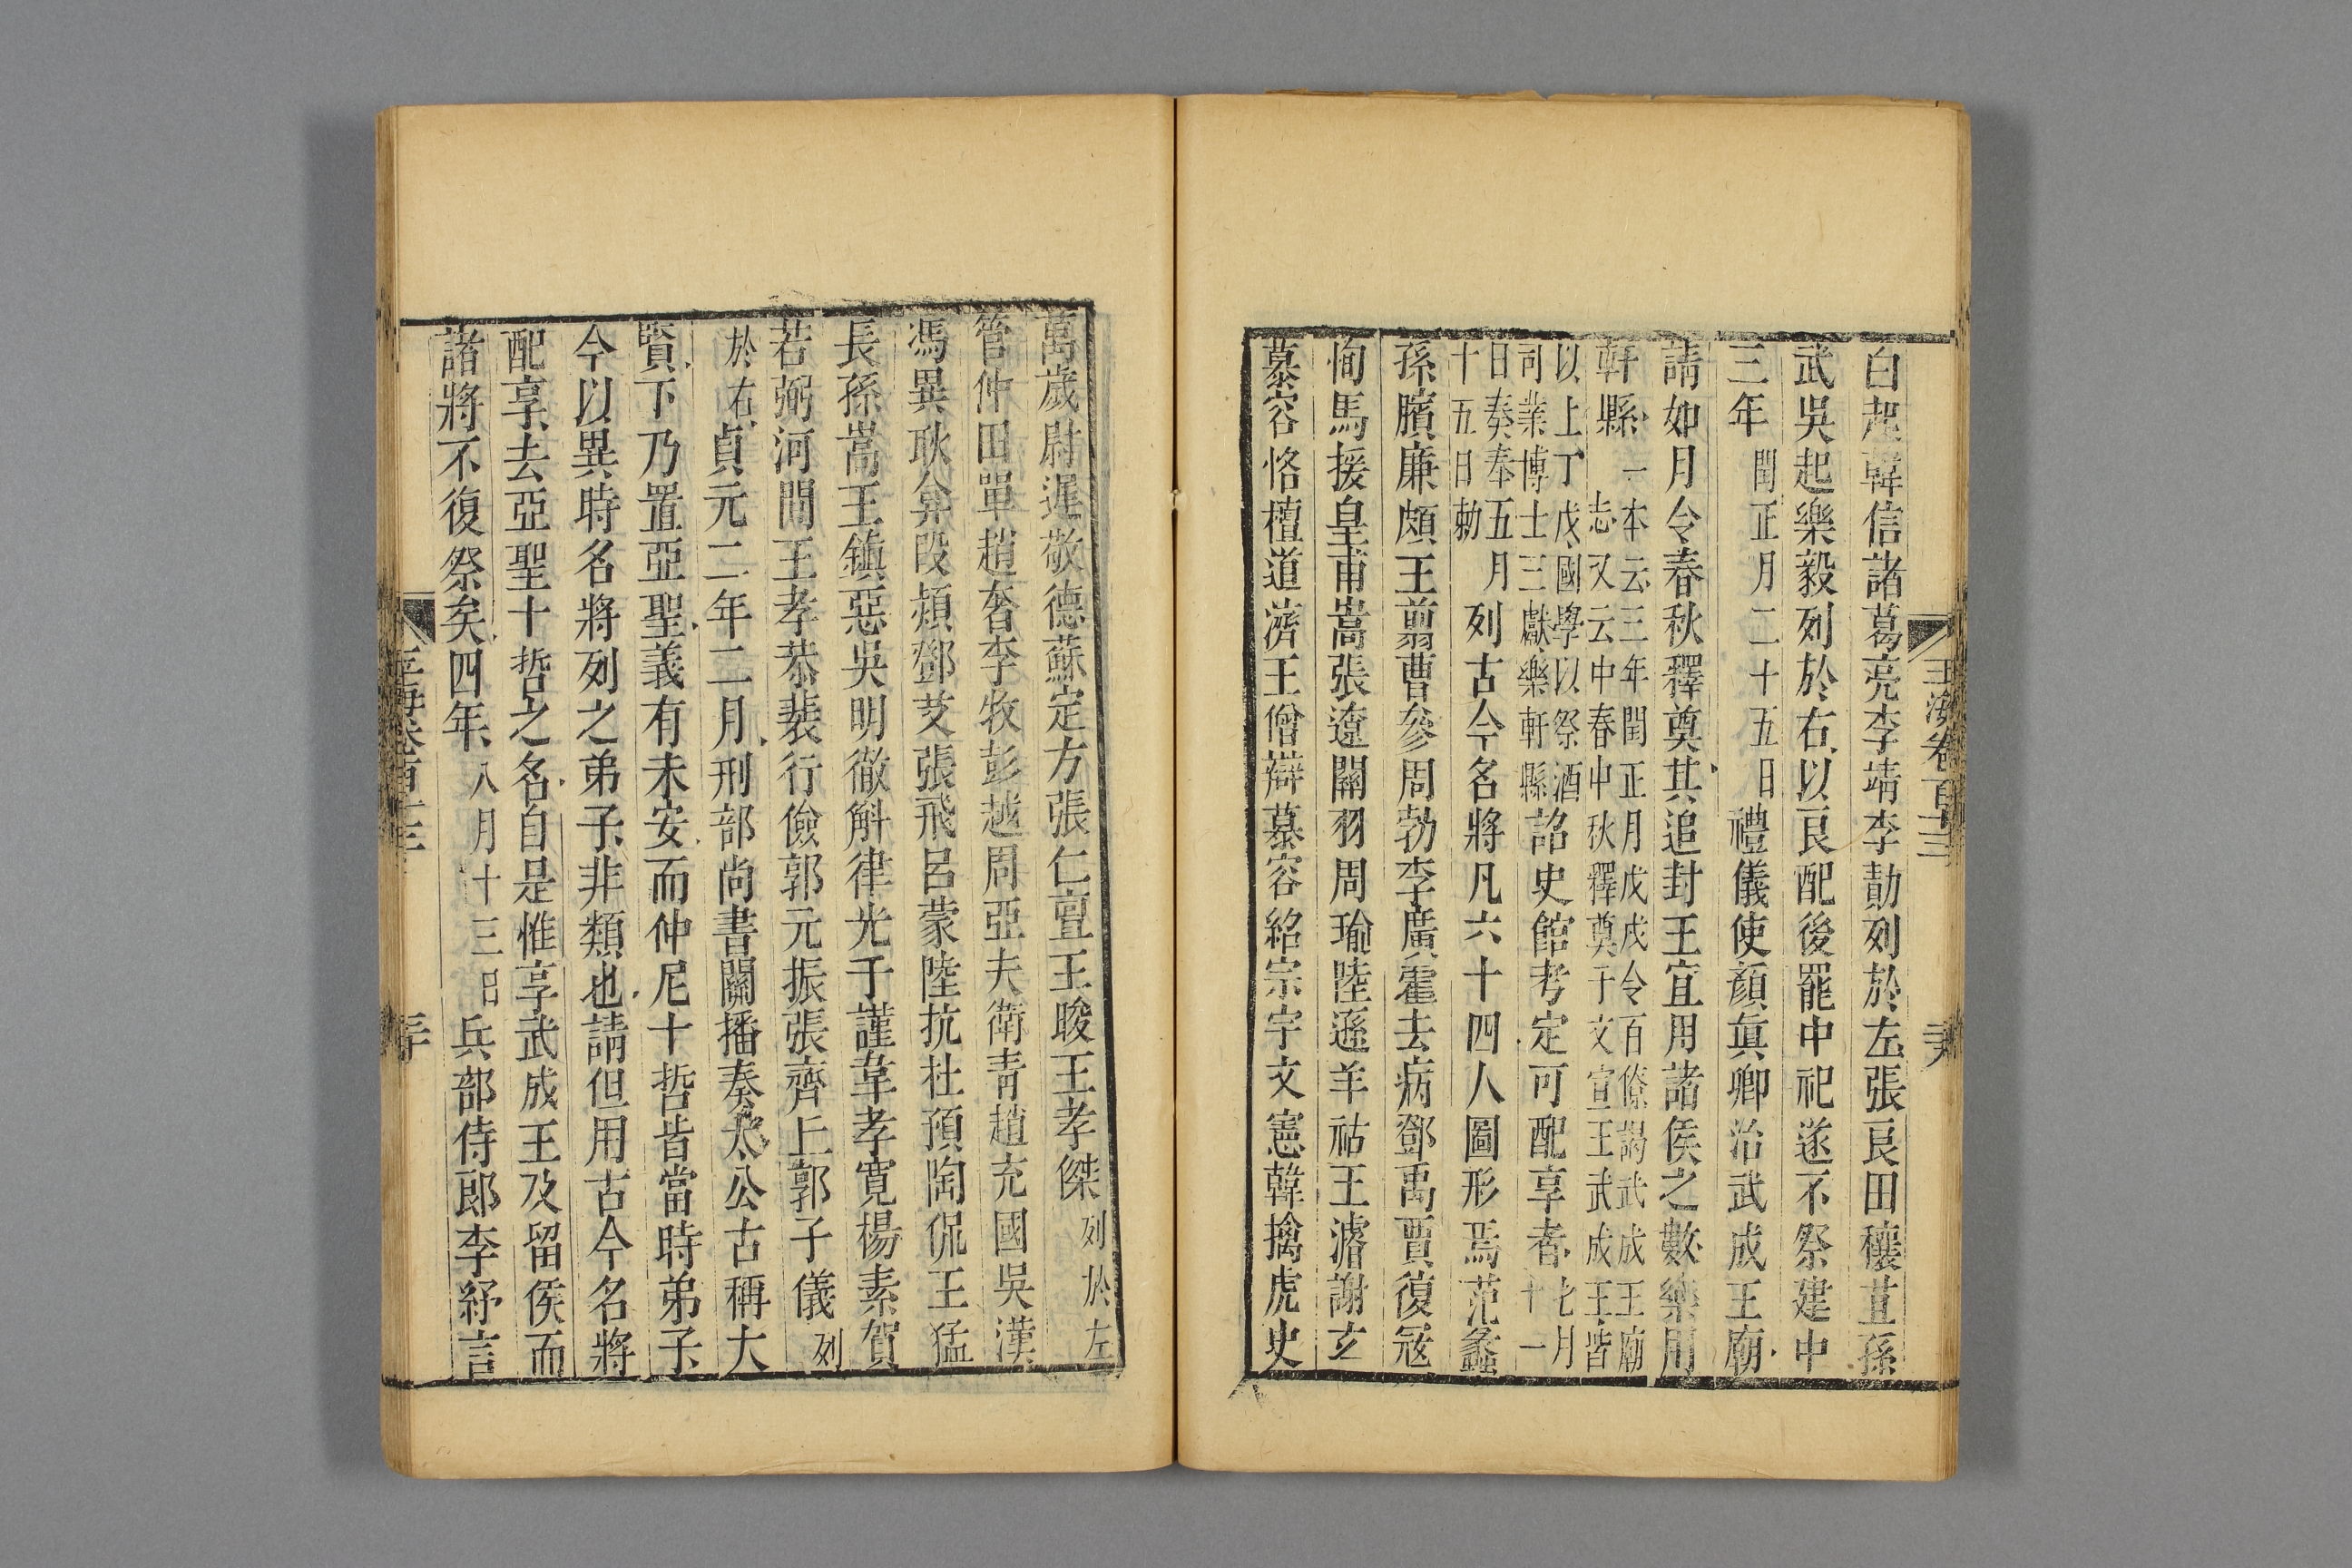 白起韓信諸葛亮李靖李勣列於左張良田穰苴孫
武吳起樂毅列於右以良配後罷中祀遂不祭建中
三年閏正月二十五日禮儀使顏眞卿治武成王廟
請如月令春秋釋奠其追封王宜用諸侯之數樂用
軒縣一本云三年閏正月戊戌令百僚謁武成王廟
志又云中春中秋釋奠于文宣王武成王皆
以上丁戊國學以祭酒
司業博士三獻樂軒縣詔史館考定可配享者七月
十一
日奏奉五月
十五日勅列古今名將凡六十四人圖形焉范蠡
孫臏廉頗王翦曹參周勃李廣霍去病鄧禹賈復寇
恂馬援皇甫嵩張遼關羽周瑜陸遜羊祜王濬謝玄
慕容恪檀道濟王僧辯慕容紹宗宇文憲韓擒虎史
玉海卷百十三
萬歲尉遲敬德蘇定方張仁亶王晙王孝傑列於左
管仲田單趙奢李牧彭越周亞夫衛青趙充國吳漢
馮異耿弇段熲鄧艾張飛呂蒙陸抗杜預陶侃王猛
長孫嵩王鎮惡吳明徹斛律光于謹韋孝寬楊素賀
若弼河間王孝恭裴行儉郭元振張齊丘郭子儀列
於右貞元二年二月刑部尚書關播奏太公古稱大
賢下乃置亞聖義有未安而仲尼十哲皆當時弟子
今以異時名將列之弟子非類也請但用古今名將
配享去亞聖十哲之名自是惟享武成王及留侯而
諸將不復祭矣四年八月十三日兵部侍郎李紓言
玉海卷百十三
三十